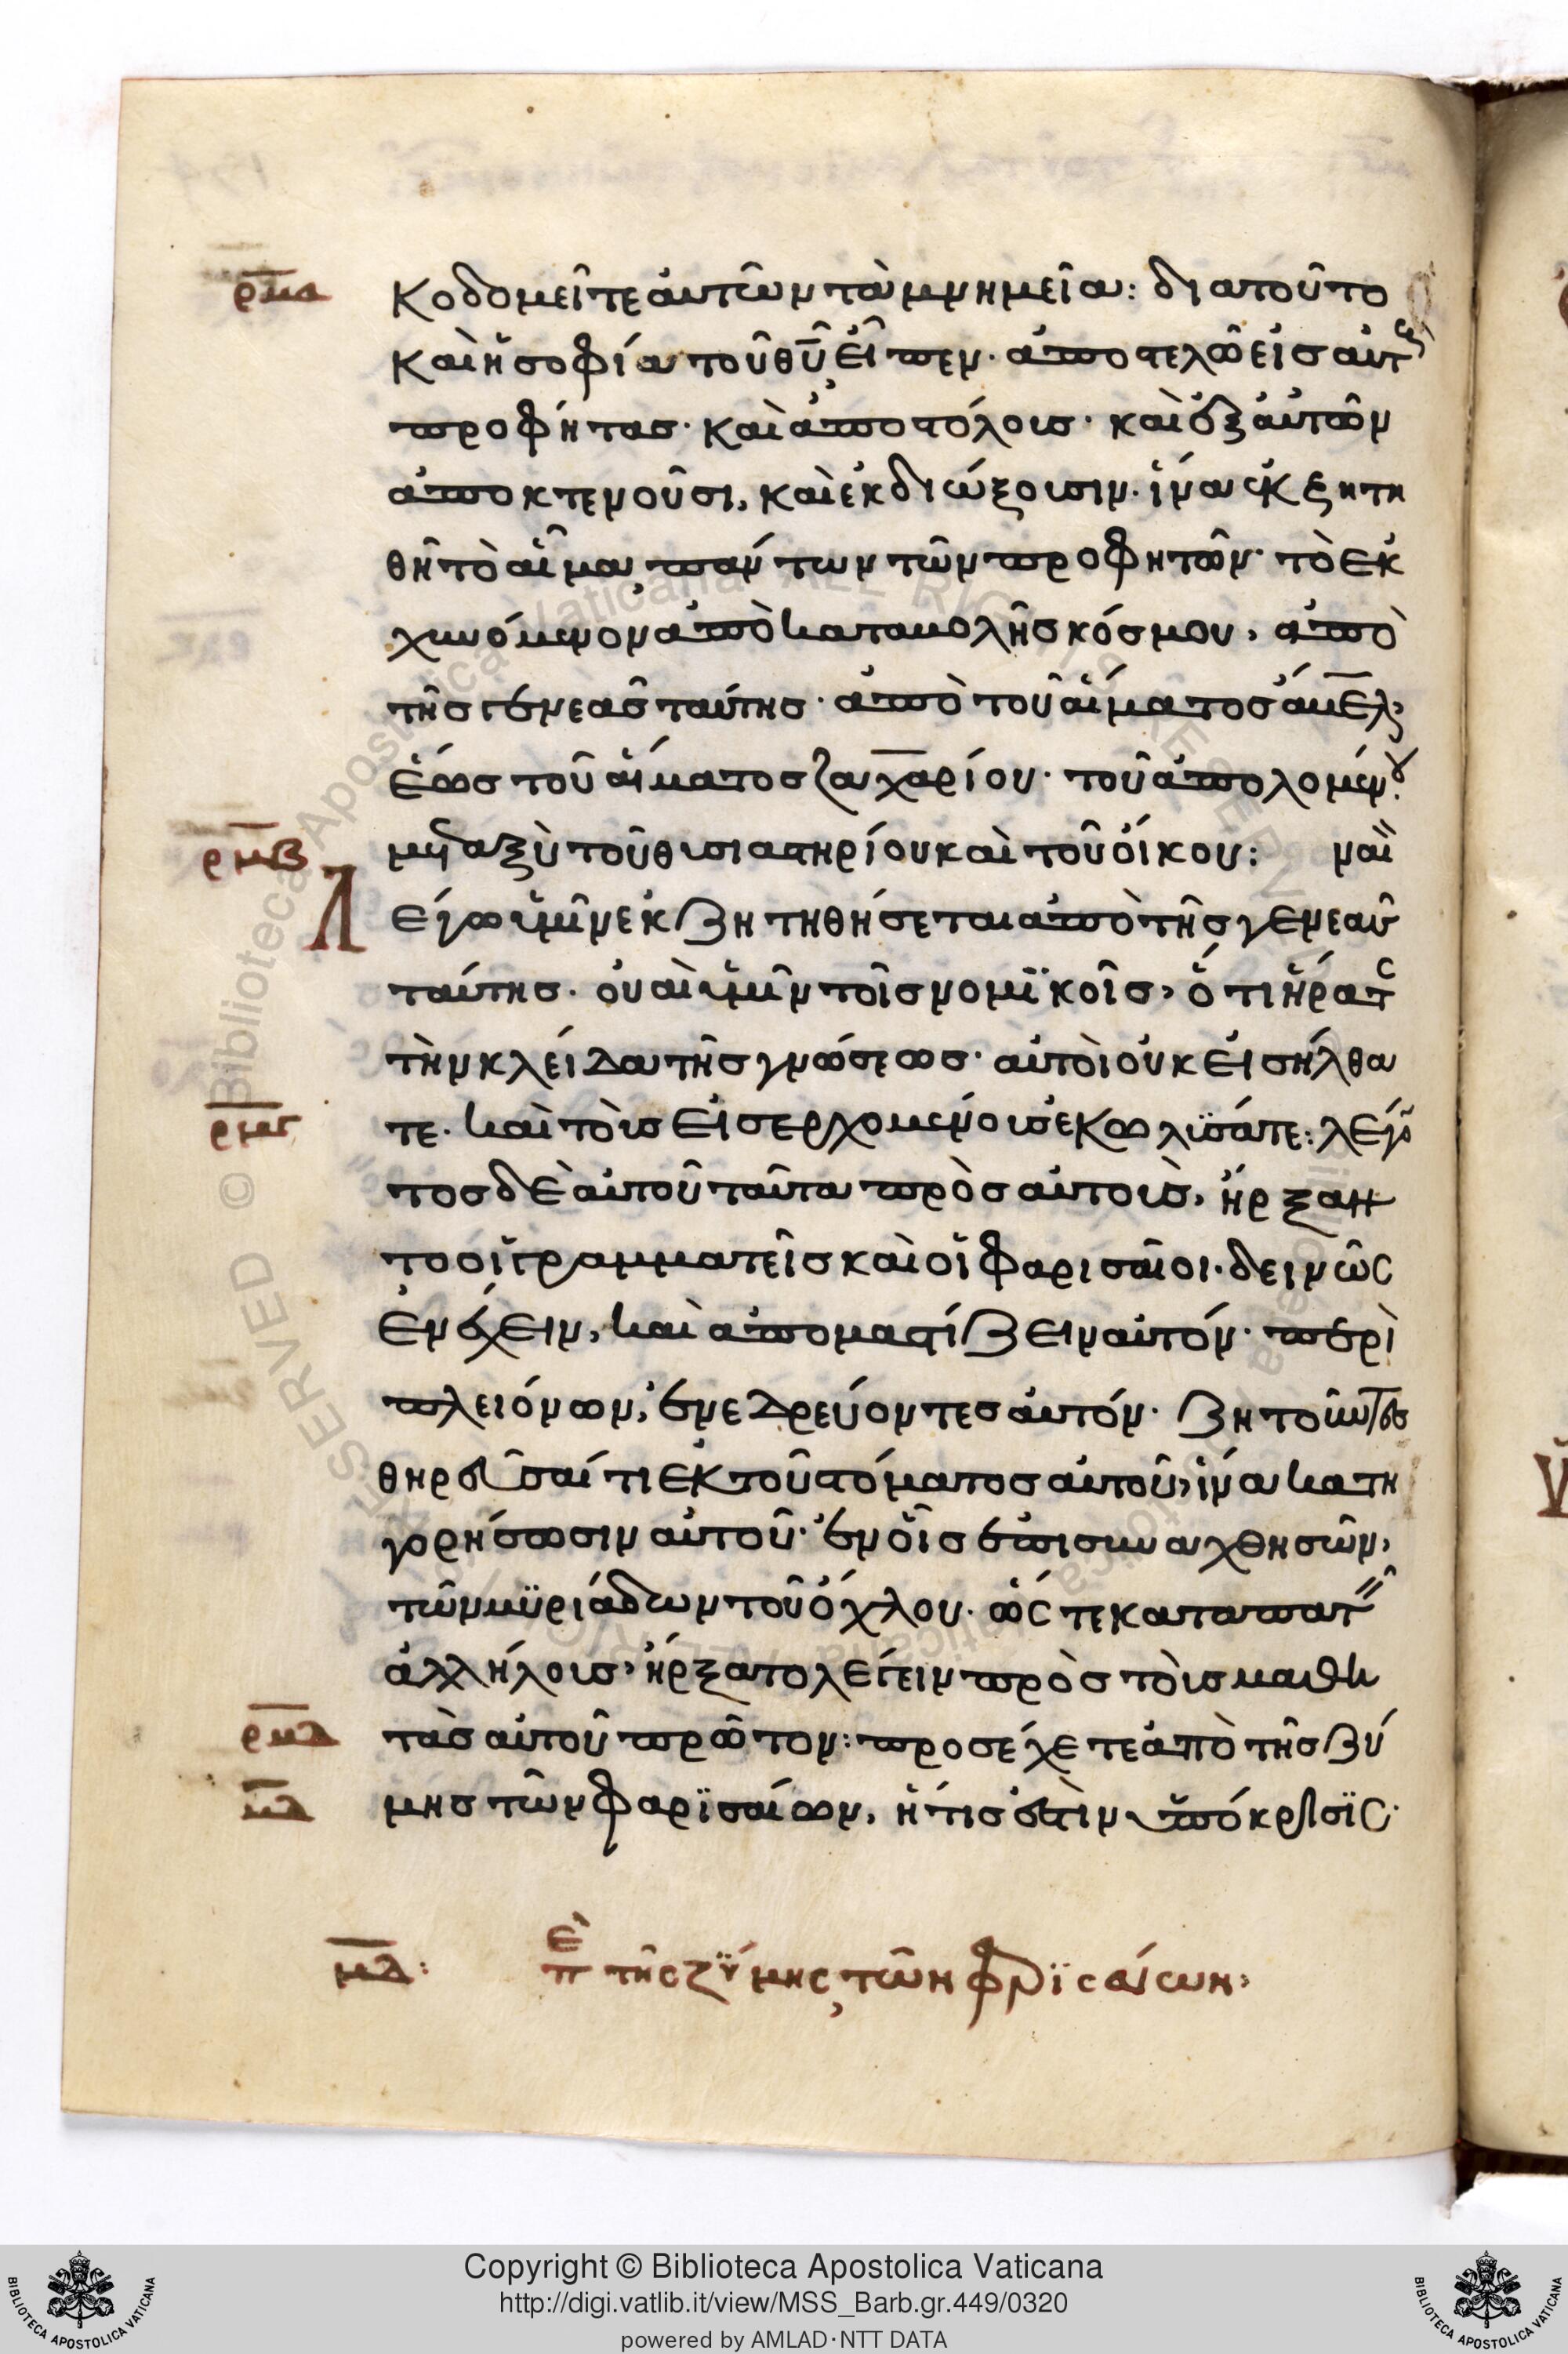 ρμα κοδομεῖτε ἀυτῶν τὰ μνημεῖα: διατοῦτο
καὶ ἡ σοφία τοῦ θῡ εἶπεν· ἀποστελῶ εἰσ αὐτοὺς
προφήτασ· καὶ ἀποστόλουσ· καὶ ἐξ ἀυτῶν
ἀποκτενοῦσι, καὶ ἐκδιώξουσιν· ἵνα ἐκζητη
θῆ τὸ αἷμα πάντων τῶν προφητῶν· τὸ ἐκ
χυνόμενον ἀπὸ καταβολῆσ κόσμου, ἀπὸ
τῆσ γενεᾶσ ταύτησ· ἀπὸ τοῦ αἵματοσ ἄβελ,
ἕωσ τοῦ αἵματοσ ζαχαρίου· τοῦ ἀπολομένου
ρμβ μεταξὺ τοῦ θυσιαστηρίου καὶ τοῦ οἴκου: ναὶ
Λέγω ὑμῖν ἐκζητηθήσεται ἀπὸ τῆσ γενεᾶσ
ταύτησ· οὐαὶ ὑμῖν τοῖσ νομϊκοῖσ, ὅτι ἤρατε
τὴν κλείδα τῆσ γνώσεωσ· αὐτοὶ οὐκ εἰσήλθα
ρμγ τε· καὶ τοὺσ εἰσερχομένουσ ἐκωλϊσάτε: λέγον
τοσ δὲ αὐτοῦ ταῦτα πρὸσ αὐτουσ, ἤρξαν
το οἱ γραμματεῖσ καὶ οἱ φαρισαῖοι· δεινῶς
ἐνέχειν, καὶ αποματίζειν αὐτόν· περὶ
πλειόνων, ἐνεδρεύοντεσ ἀυτόν· ζητοῦντεσ
θηρεῦσαί τι ἐκ τοῦ στόματοσ αὐτοῦ, ἵνα κατη
γορήσωσιν αὐτοῦ· ἐν οἷσ ἐπισυναχθησῶν,
τῶν μϋριάδων τοῦ ὄχλου· ὥς τε καταπατεῖν
ἀλλήλουσ, ἤρξατο λέγειν πρὸσ τοὺσ μαθη
ρμδ τὰσ αὐτοῦ πρῶτον: προσέχετε ἀπὸ τῆσ ζύ
μδ μησ τῶν φαρϊσαίων, ἥτισ ἐστὶν ὑπόκρισϊς·
μδ: πὲ τῆς ζΰμης τῶν φαρϊσαίων,
Copyright © Biblioteca Apostolica Vaticana
http://digi.vatlib.it/view/MSS_Barb.gr.449/0320
powered by AMLAD·NTT DATA
BIBLIOTECA APOSTOLICA VATICANA
BIBLIOTECA APOSTOLICA VATICANA